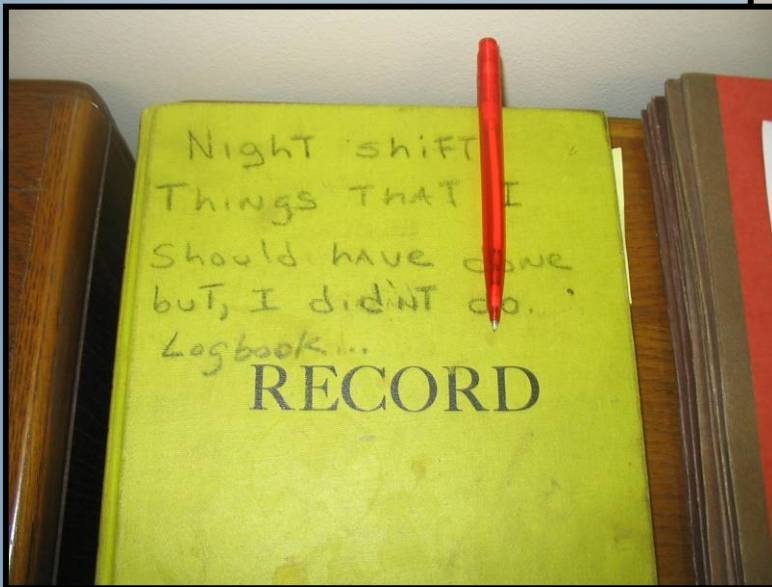 NighT shiFT
ThiNgs ThAT I
Should hAve done
buT, I didiNT do.
Logbook...
RECORD